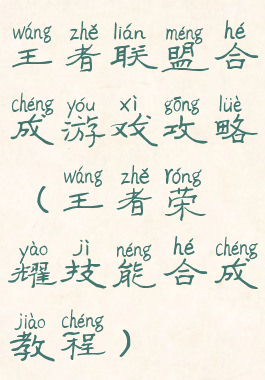 wáng zhě lián méng hé
王者联盟合
chéng yóu xì gōng lüè
成游戏攻略
wáng zhě róng
（王者荣
yào jì néng hé chéng
耀技能合成
jiào chéng
教程）